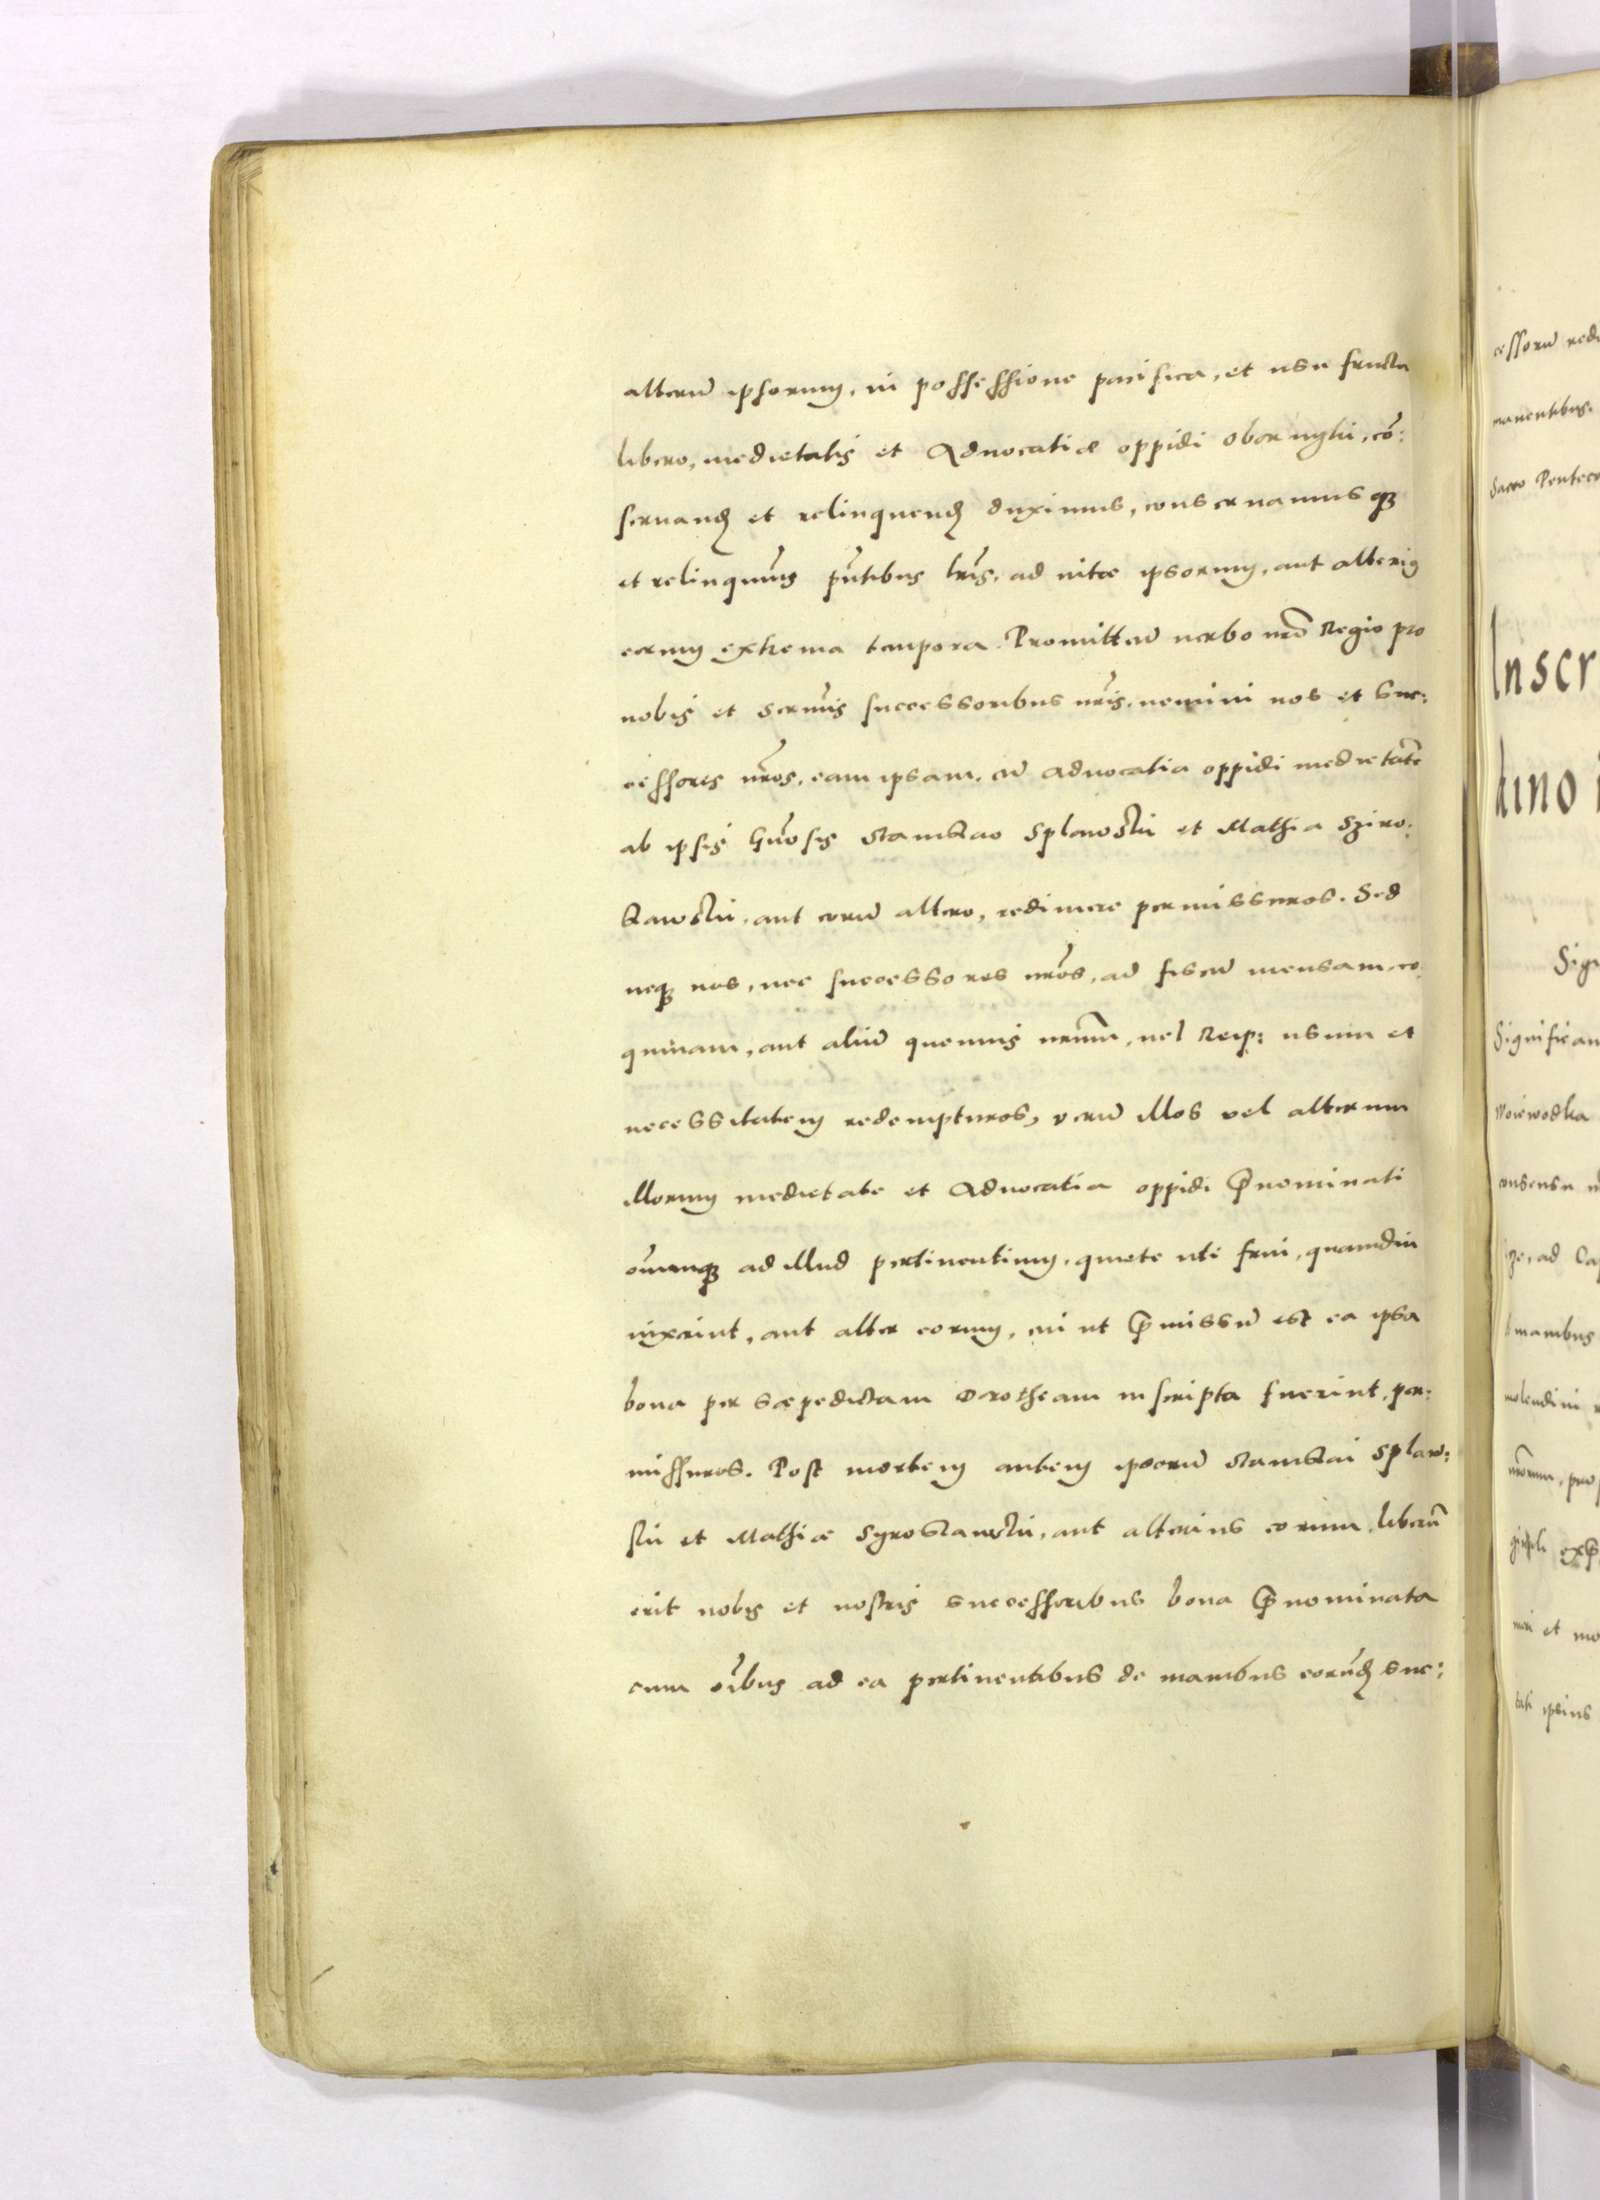 alterū ipsorum, in possessione pacifica, et usu fructu
libero, medietatis et Aduocatiæ oppidi Obornghi, cō:
seruand et relinquend duximus, conseruamusq̃
et relinquim̃s p̃ntibus lr̃is, ad vitæ ipsorum, aut alterius
eorum extrema tempora. Promittētes verbo nr̃o Regio pro
nobis et serm̃is successoribus nr̃is, nemini nos et suc:
cessores nr̃os, eam ipsam, cū aduocatia oppidi medietatē
ab ipsis Gn̄osis Stanislao Splawski et Mathia Sziro:
slawski, aut eorū altero, redimere permissuros. Sed
neq̃ nos, nec successores nr̃os, ad fiscū mensam, co:
quinam, aut aliū quemuis nr̃um, vel Reip: usum et
necessitatem redempturos, verū illos vel alterum
illorum medietate et Aduocatia oppidi p̃nominati
om̃iumq̃ ad illud pertinentium, quiete uti frui, quamdiu
vixerint, aut alter eorum, cui ut p̃missū est ea ipsa
bona per sæpedictam Dorotheam inscripta fuerint, per:
missuros. Post mortem autem ipsorū Stanislai Splaw:
ski et Mathiæ Syroslawski, aut alterius eorum, liberū
erit nobis et nostris successoribus bona p̃nominata
cum oĩbus ad ea pertinentibus de manibus eorūd suc:
cessorū
manentibus.
Sacro
Inscr
kino
Sig
Significam
Woiewodka
consensu
ize, ad Ca
manibus
molendini
nr̃orum, pro
meri et mo
ipsius